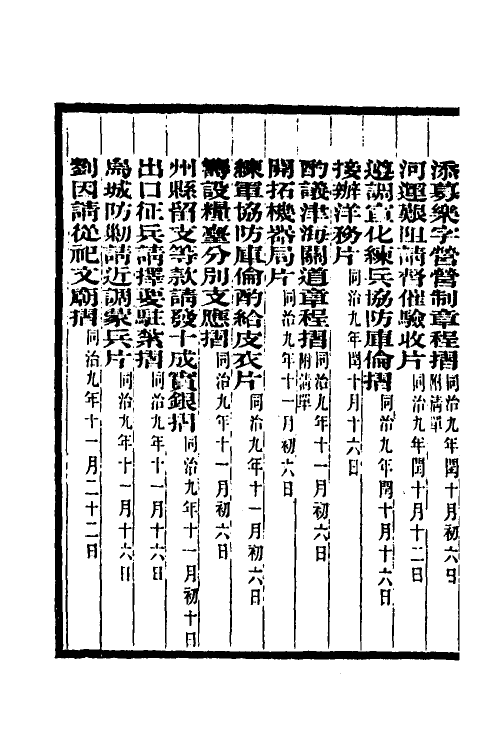 添募樂字營營制章程摺同治九年閏十月初六日附清單
河運艱阻請暫催驗收片同治九年閏十月十二日
遵調宣化練兵協防庫倫摺同治九年閏十月十六日
接辦洋務片同治九年閏十月十六日
酌議津海關道章程摺同治九年十一月初六日附清單
開拓機器局片同治九年十一月初六日
練軍協防庫倫酌給皮衣片同治九年十一月初六日
籌設糧臺分別支應摺同治九年十一月初六日
州縣留支等款請發十成實銀摺同治九年十一月初十日
出口征兵請擇要駐紮摺同治九年十一月十六日
烏城防勦請近調蒙兵片同治九年十一月十六日
劉因請從祀文廟摺同治九年十一月二十二日